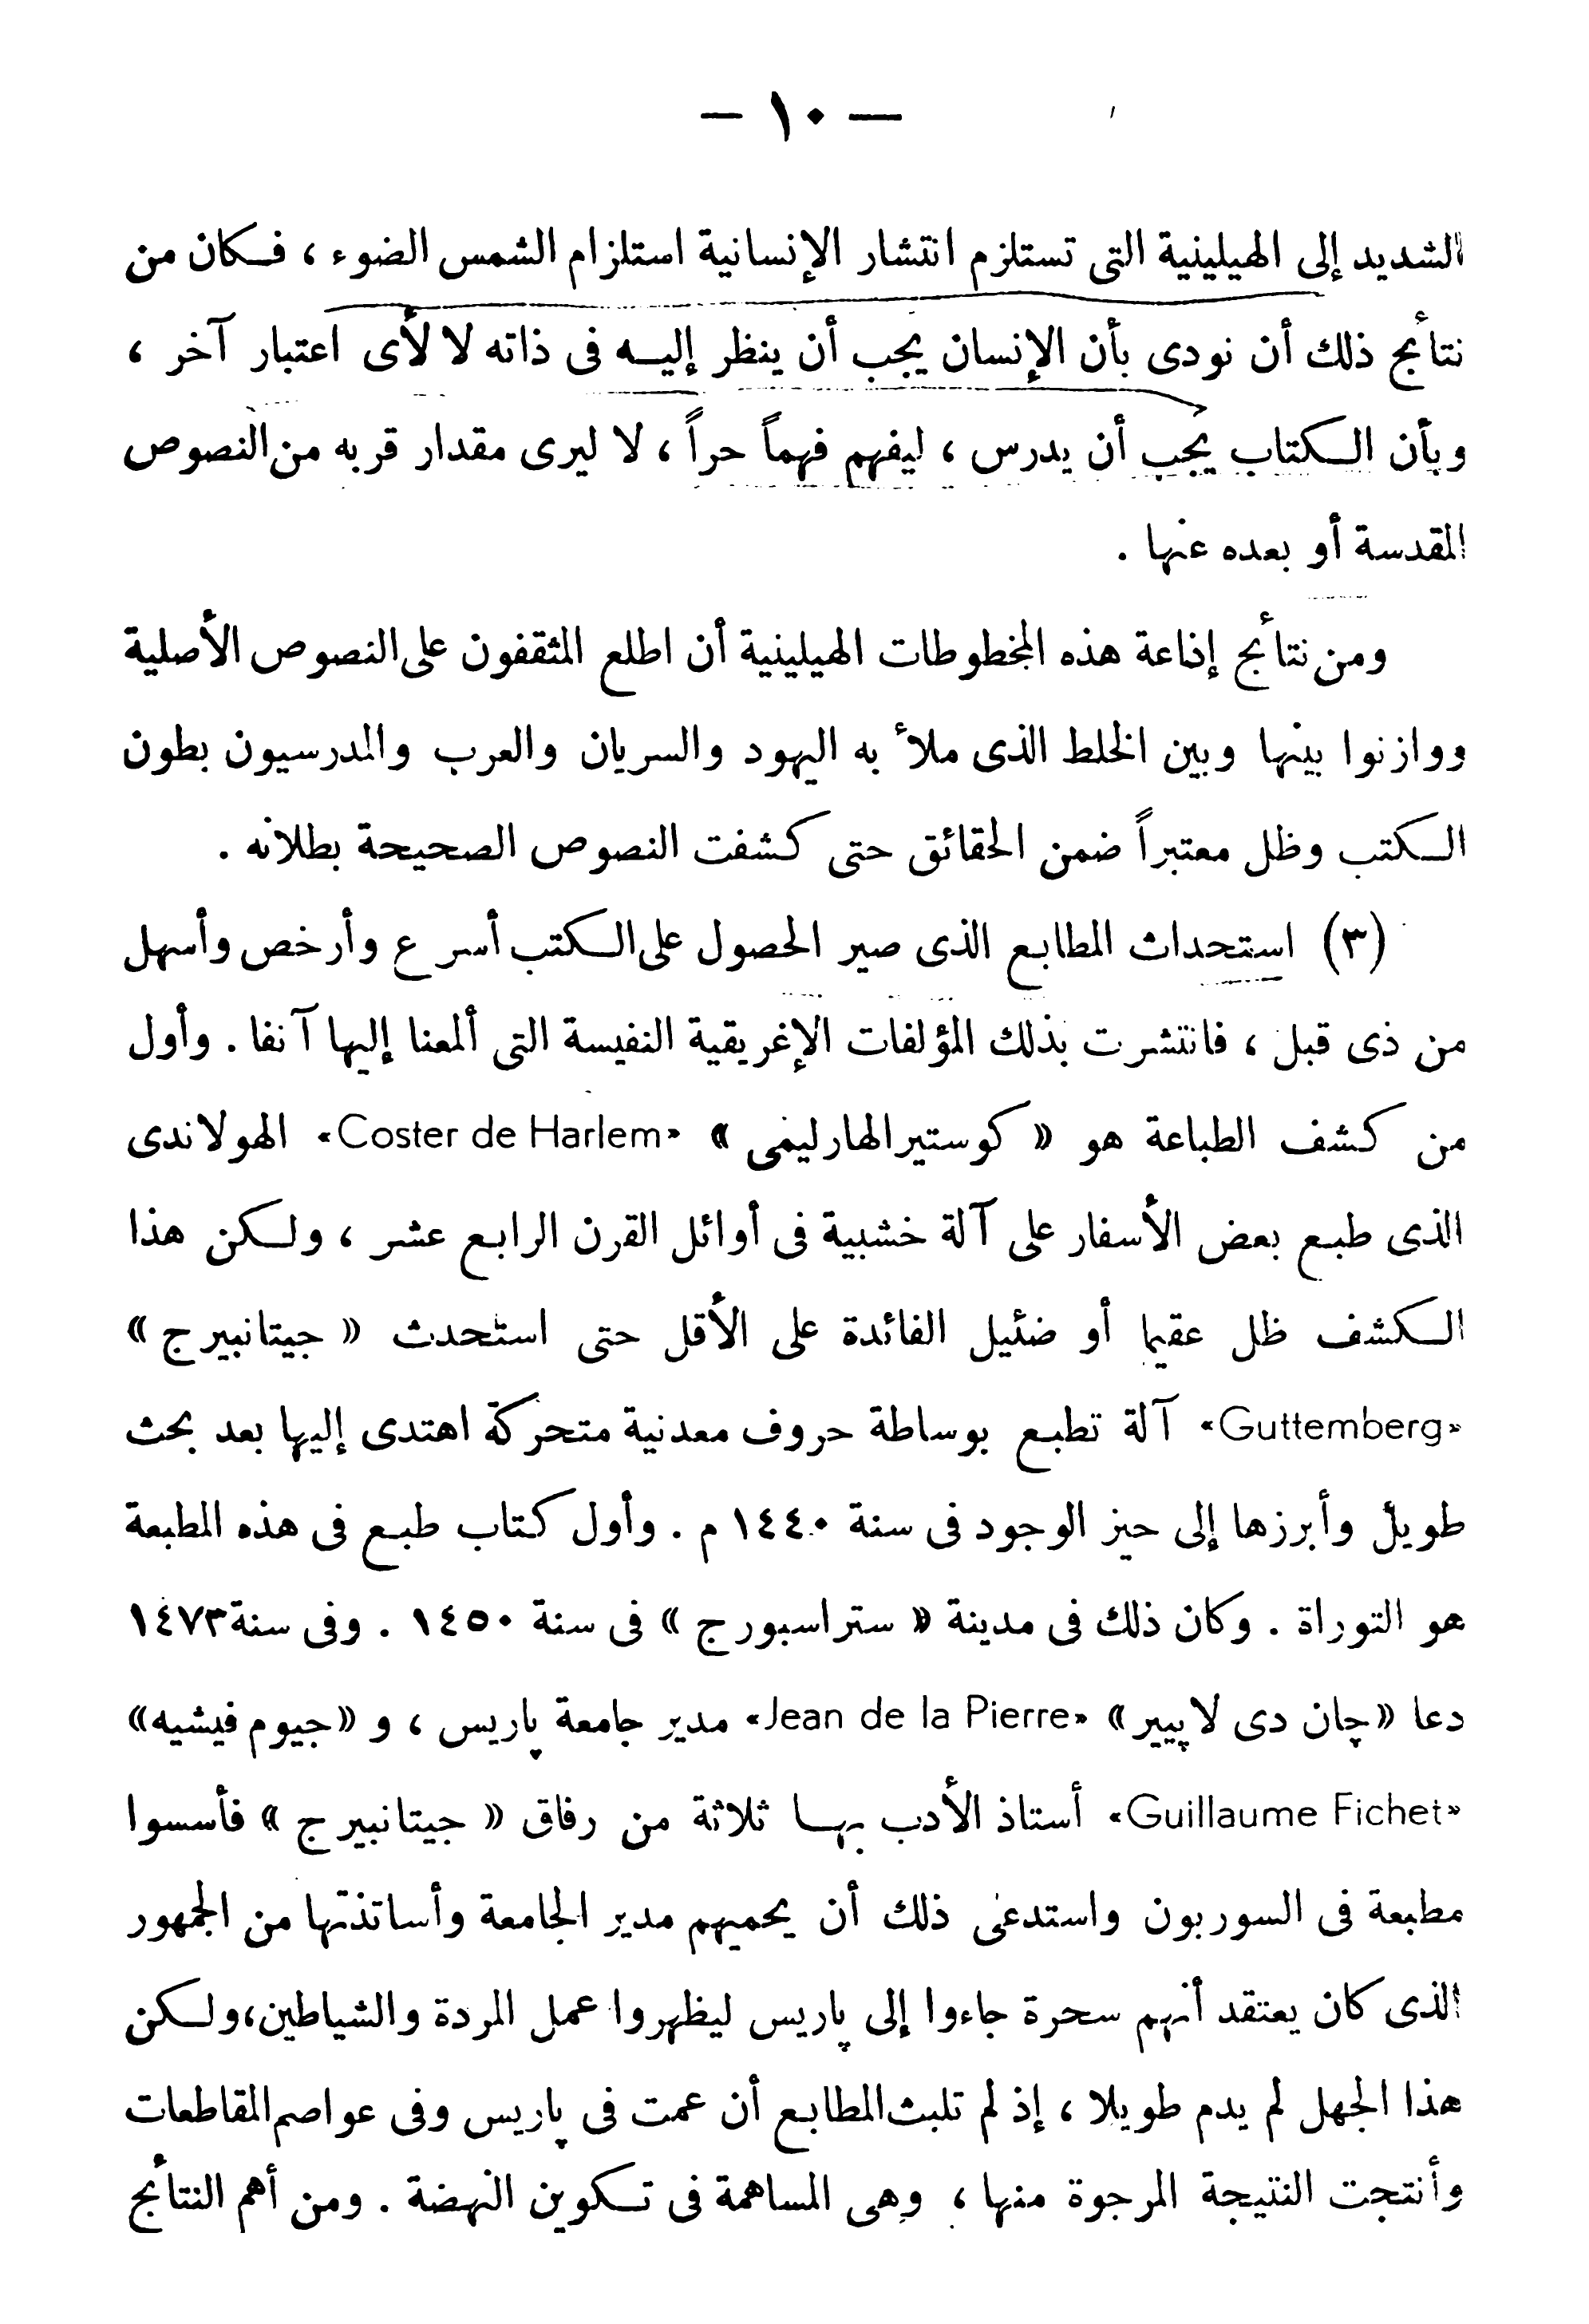 — ١٠ —
الشديد إلى الهيلينية التى تستلزم انتشار الإنسانية استلزام الشمس الضوء ، فكان من
نتائج ذلك أن نودى بأن الإنسان يجب أن ينظر إليه فى ذاته لا لأى اعتبار آخر ،
وبأن الكتاب يجب أن يدرس ، ليفهم فهماً حراً ، لا ليرى مقدار قربه من النصوص
المقدسة أو بعده عنها .
ومن نتائج إذاعة هذه المخطوطات الهيلينية أن اطلع المثقفون على النصوص الأصلية
ووازنوا بينها وبين الخلط الذى ملأ به اليهود والسريان والعرب والمدرسيون بطون
الكتب وظل معتبراً ضمن الحقائق حتى كشفت النصوص الصحيحة بطلانه .
(٣) استحداث المطابع الذى صير الحصول على الكتب أسرع وأرخص وأسهل
من ذى قبل ، فانتشرت بذلك المؤلفات الإغريقية النفيسة التى ألمعنا إليها آنفا . وأول
من كشف الطباعة هو « كوستير الهارليمى » «Coster de Harlem» الهولاندى
الذى طبع بعض الأسفار على آلة خشبية فى أوائل القرن الرابع عشر ، ولكن هذا
الكشف ظل عقيما أو ضئيل الفائدة على الأقل حتى استحدث « جيتانبيرج »
«Guttemberg» آلة تطبع بوساطة حروف معدنية متحركة اهتدى إليها بعد بحث
طويل وأبرزها إلى حيز الوجود فى سنة ١٤٤٠ م . وأول كتاب طبع فى هذه المطبعة
هو التوراة . وكان ذلك فى مدينة « ستراسبورج » فى سنة ١٤٥٠ . وفى سنة ١٤٧٣
دعا «چان دى لاپيير» «Jean de la Pierre» مدير جامعة پاريس ، و «جيوم فيشيه»
«Guillaume Fichet» أستاذ الأدب بها ثلاثة من رفاق « جيتانبيرج » فأسسوا
مطبعة فى السوربون واستدعى ذلك أن يحميهم مدير الجامعة وأساتذتها من الجمهور
الذى كان يعتقد أنهم سحرة جاءوا إلى پاريس ليظهروا عمل المردة والشياطين، ولكن
هذا الجهل لم يدم طويلا ، إذ لم تلبث المطابع أن عمت فى پاريس وفى عواصم المقاطعات
وأنتجت النتيجة المرجوة منها ، وهى المساهمة فى تكوين النهضة . ومن أهم النتائج